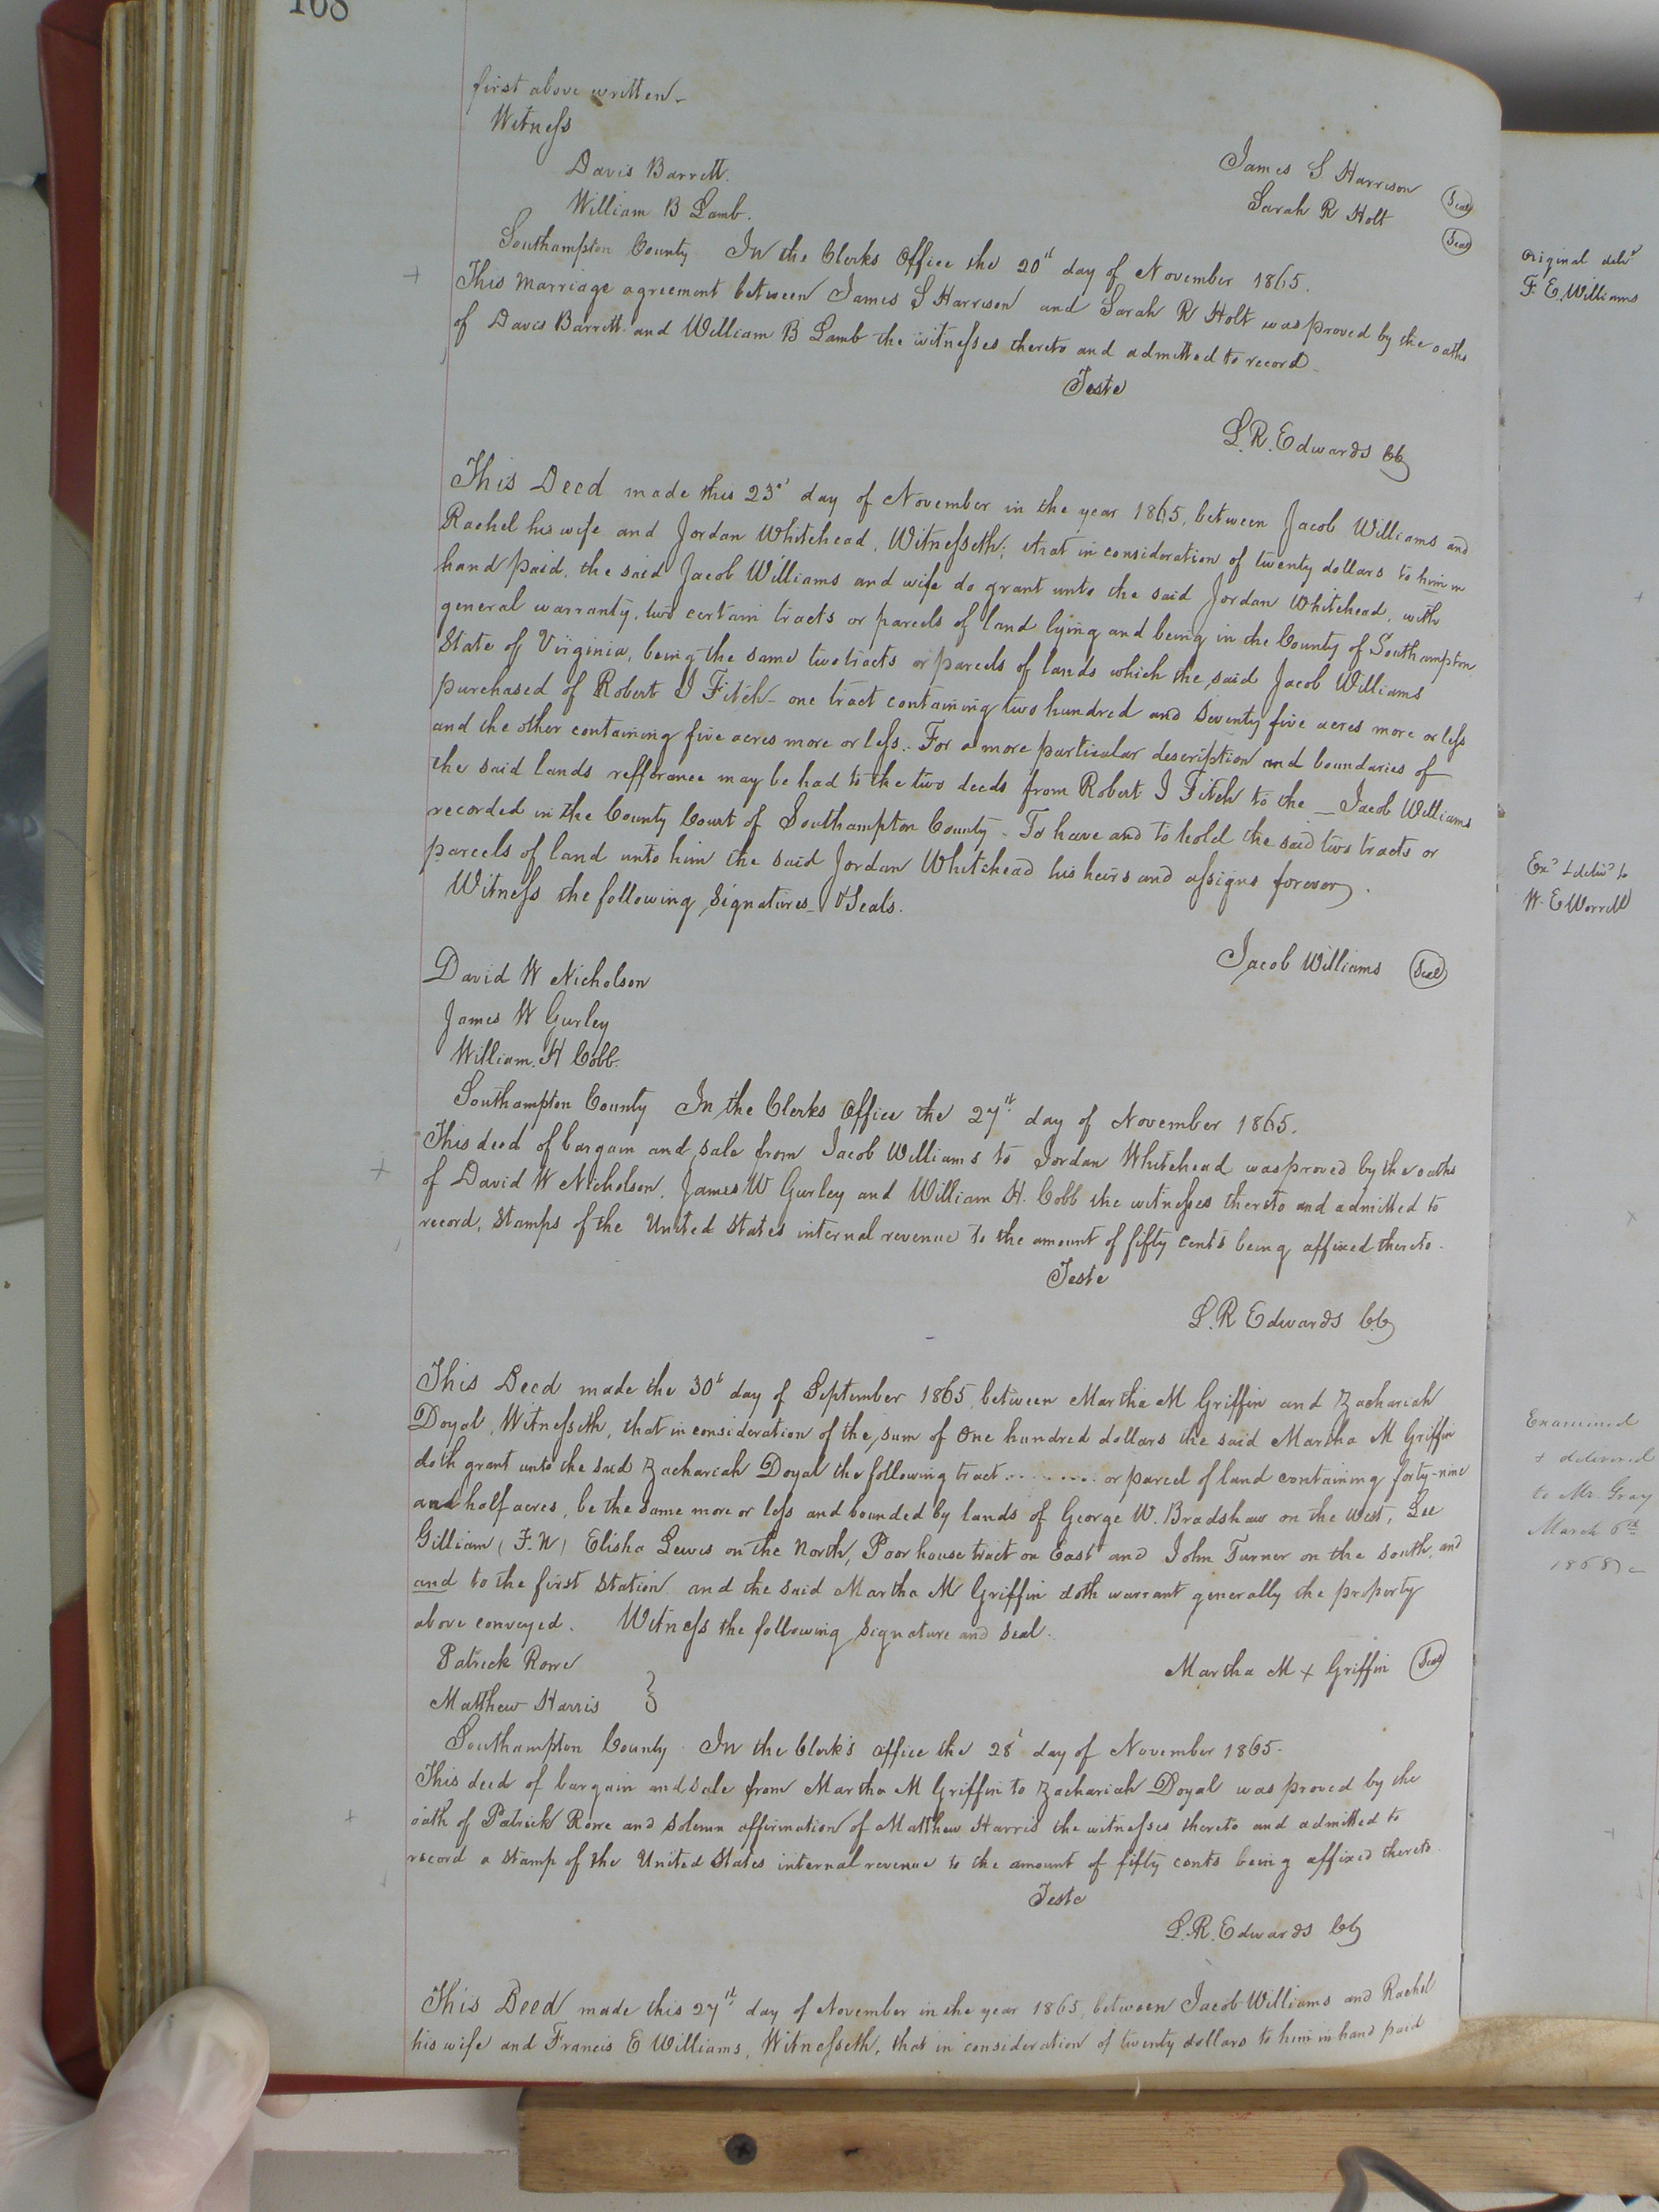 168
first above written
Witness
Davis Barrett.
William B Lamb.
James S Harrison Seal
Sarah R Holt Seal
Southampton County In the Clerks Office the 20th day of November 1865.
This Marriage agreement between James S Harrison and Sarah R Holt was proved by the oaths
of Davis Barrett and William B Lamb the witnesses thereto and admitted to record
Teste
L.R. Edwards CC
This Deed made this 23d day of November in the year 1865, between Jacob Williams and
Rachel his wife and Jordan Whitehead, Witnesseth; that in consideration of twenty dollars to him in
hand paid, the said Jacob Williams and wife do grant unto the said Jordan Whitehead, with
general warranty, two certain tracts or parcels of land lying and being in the County of Southampton
State of Virginia, being the same two tracts or parcels of lands which the said Jacob Williams
purchased of Robert I Fitch - one tract containing two hundred and seventy five acres more or less
and the other containing five acres more or less. For a more particular description and boundaries of
the said lands refferance may be had to the two deeds from Robert I Fitch to the _ Jacob Williams
recorded in the County Court of Southampton County. To have and to hold the said two tracts or
parcels of land unto him the said Jordan Whitehead his heirs and assigns forever.
Witness the following signatures & Seals.
Jacob Williams Seal
David W Nicholson
James W Gurley
William H Cobb.
Southampton County In the Clerks Office the 27th day of November 1865.
This deed of bargain and sale from Jacob Williams to Jordan Whitehead was proved by the oaths
of David W Nicholson, James W Gurley and William H. Cobb the witnesses thereto and admitted to
record, stamps of the United States internal revenue to the amount of fifty cents being affixed thereto.
Teste
L.R Edwards CC
This Deed made the 30th day of September 1865, between Martha M Griffin and Zachariah
Doyal, Witnesseth, that in consideration of the sum of One hundred dollars the said Martha M Griffin
doth grant unto the said Zachariah Doyal the following tract ........ or parcel of land containing forty-nine
and half acres, be the same more or less and bounded by lands of George W. Bradshaw on the West, Lee
Gilliam (F.N) Elisha Lewis on the North, Poor house tract on East and John Turner on the South, and
and to the first Station and the said Martha M Griffin doth warrant generally the property
above conveyed. Witness the following signature and seal.
Patrick Rowe
Matthew Harris
Martha M x Griffin Seal
Southampton County In the Clerk's office the 28th day of November 1865.
This deed of bargain and sale from Martha M Griffin to Zachariah Doyal was proved by the
oath of Patrick Rowe and solemn affirmation of Matthew Harris the witnesses thereto and admitted to
record a stamp of the United States internal revenue to the amount of fifty cents being affixed thereto
Teste
L.R. Edwards CC
This Deed made this 27th day of November in the year 1865, between Jacob Williams and Rachel
his wife and Francis E Williams, Witnesseth, that in consideration of twenty dollars to him in hand paid
Original delvd
F. E. Williams
Exd & delivd to
W. E Worrell
Examined
& delivered
to Mr. Gray
March 6th
1868